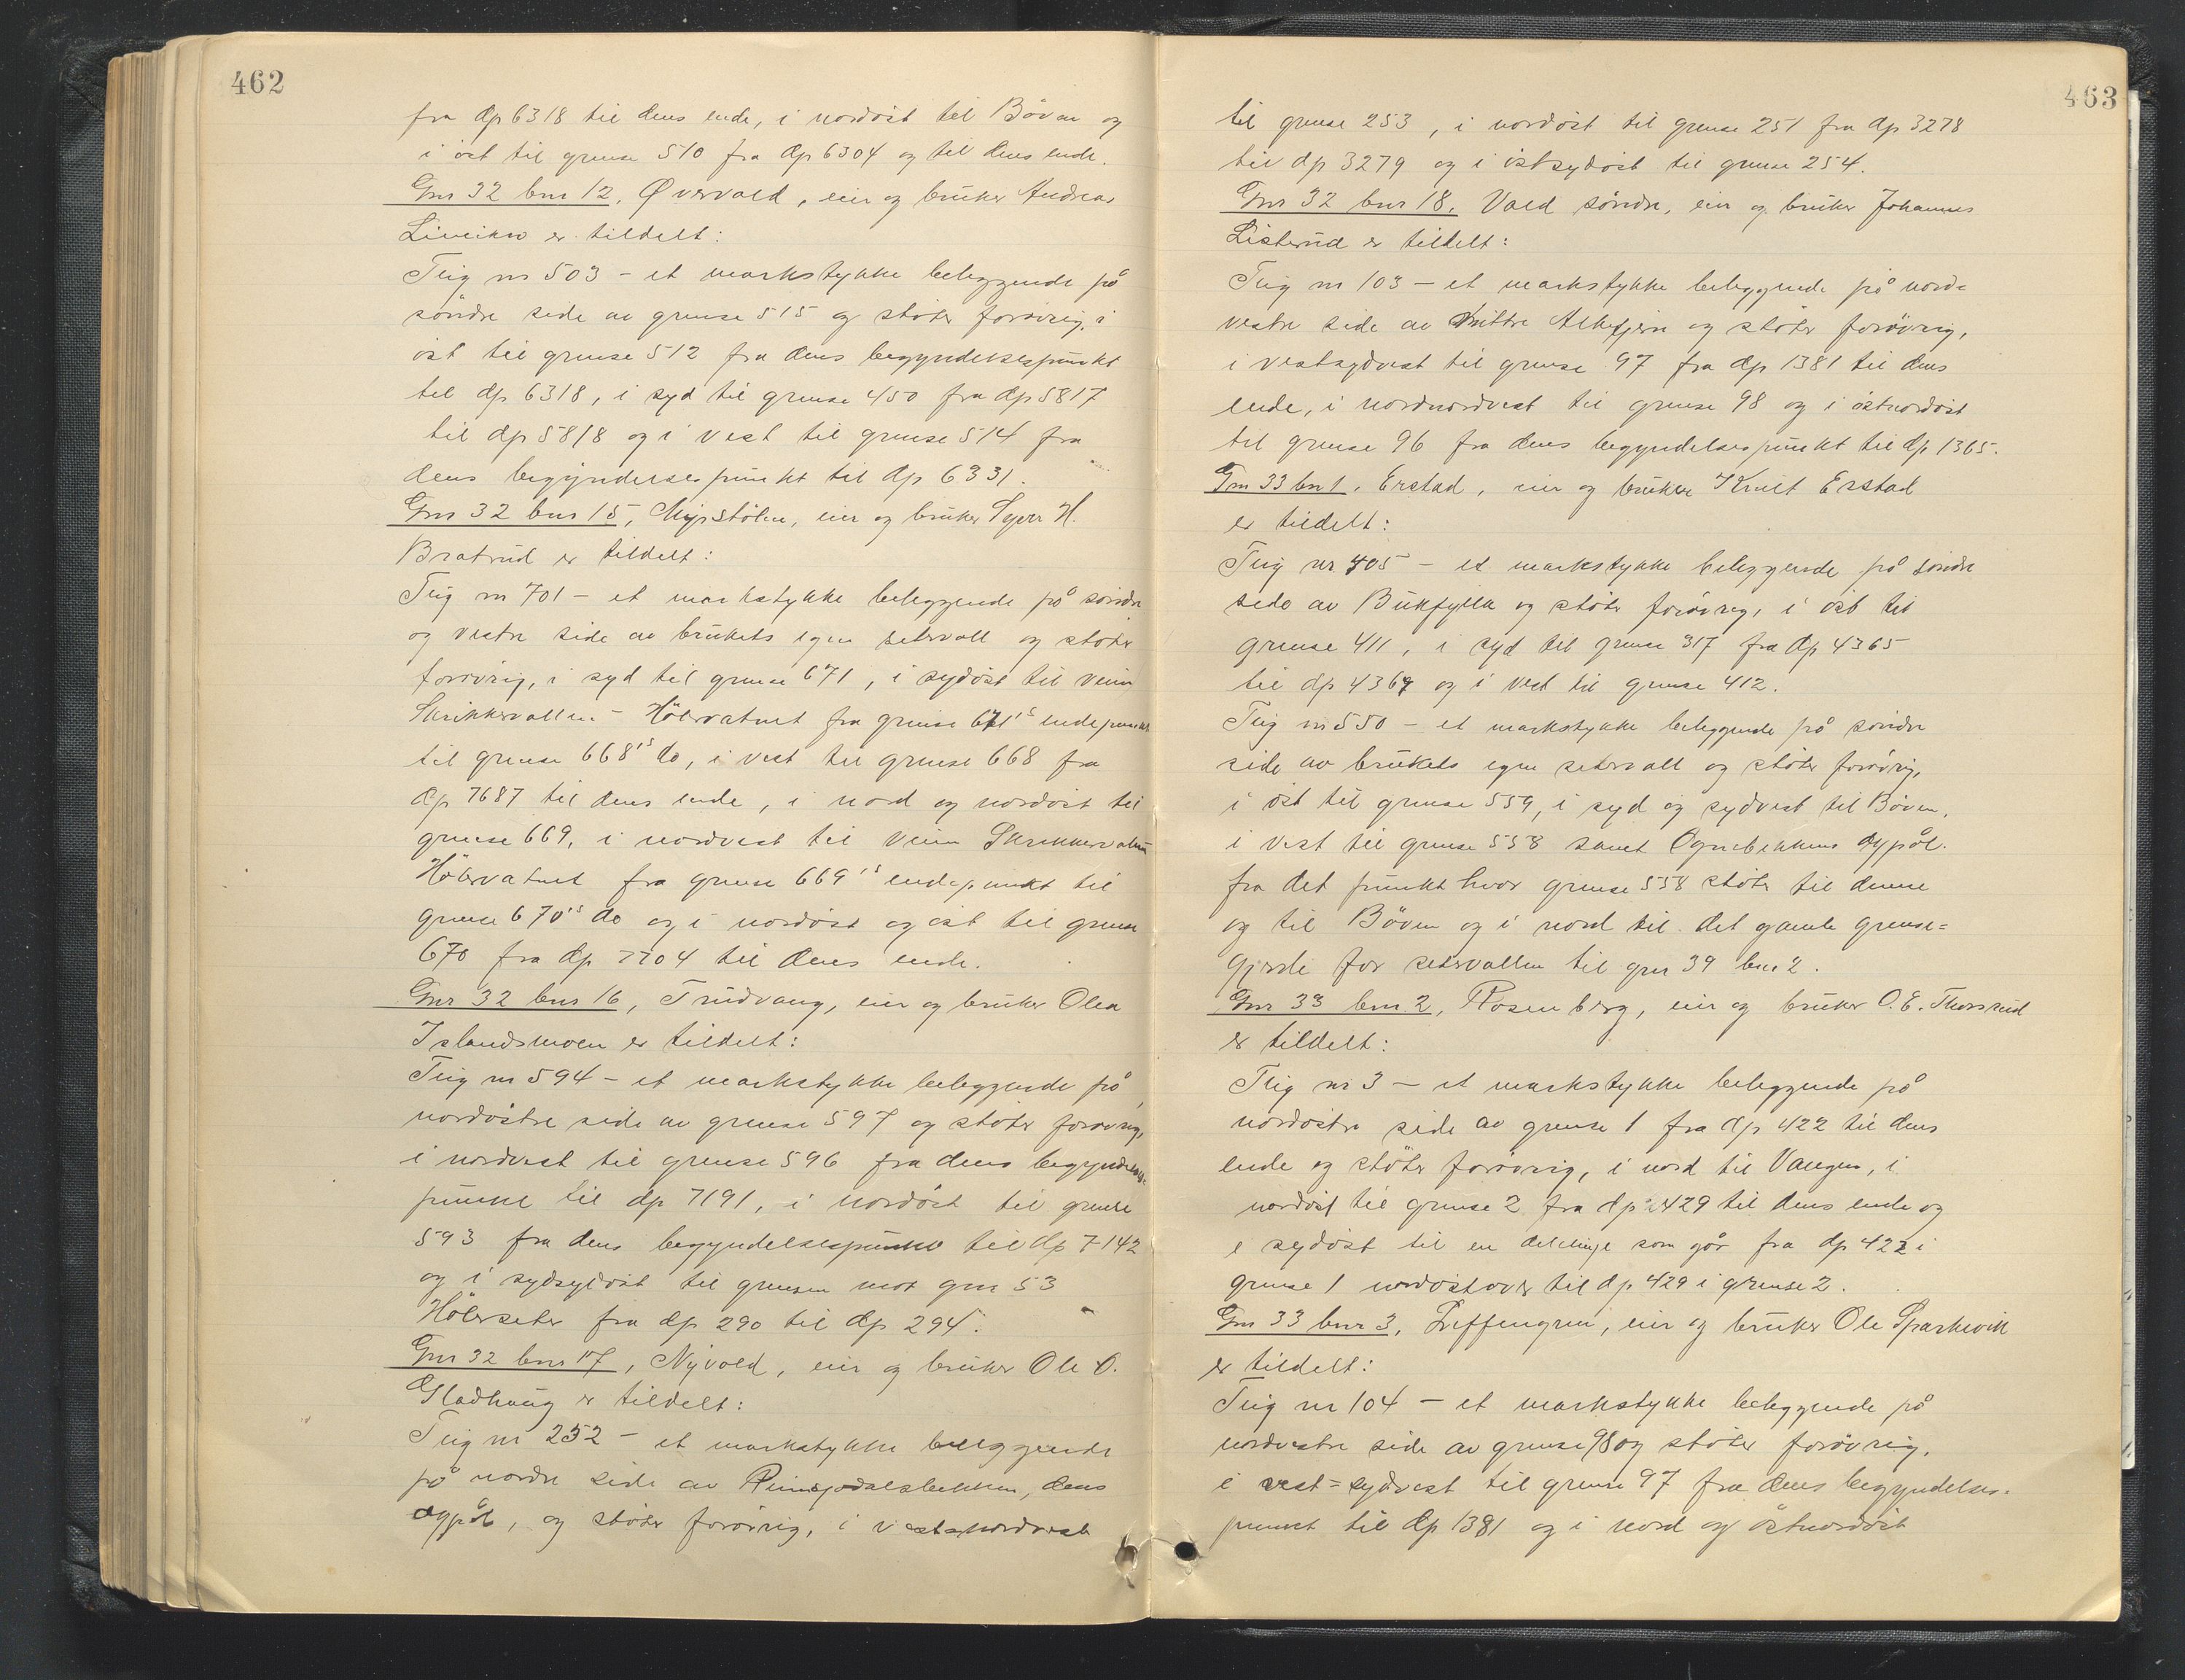 462
fra dp 6318 til dens ende, i nordöst til Böven og
i öst til grense 510 fra dp 6304 og til dens ende.
Gnr 32 bnr 12, Øvrvold, eier og bruker Andreas
er tildelt:
Teig nr 503 - et markstykke beliggende på
söndre side av grense 515 og støter forøvrig, i
öst til grense 512 fra dens begyndelsespunkt
til dp 6318, i syd til grense 450 fra dp 5817
til dp 5818 og i vest til grense 514 fra
dens begyndelsespunkt til dp 6331.
Gnr 32 bnr 15, Myrstölen, eier og bruker H.
Bratrud er tildelt:
Teig nr 701 - et markstykke beliggende på söndre
og vestre side av brukets egen setervoll og støter
forøvrig, i syd til grense 671, i sydöst til veien
Skrikkervollen - Hölervatnet fra grense 671's endepunkt
til grense 668's do, i vest til grense 668 fra
dp 7687 til dens ende, i nord og nordöst til
grense 669, i nordvest til veien Skrikkervollen
Hölervatnet fra grense 669's endepunkt til
grense 670's do og i nordöst og öst til grense
670 fra dp 7704 til dens ende.
Gnr 32 bnr 16, Trudvang, eier og bruker Olea
Islandsmoen er tildelt:
Teig nr 594 - et markstykke beliggende på
nordöstre side av grense 597 og støter forøvrig,
i nordvest til grense 596 fra dens begyndelses-
punkt til dp 7191, i nordöst til grense
593 fra dens begyndelsespunkt til dp 7142
og i sydsydöst til grensen mot gnr 53
Hölerseter fra dp 290 til dp 294.
Gnr 32 bnr 17, Nyvold, eier og bruker Ole O.
Gladhaug er tildelt:
Teig nr 252 - et markstykke beliggende
på nordre side av dens
dypål, og støter forøvrig, i vestnordvest
463
til grense 253, i nordöst til grense 251 fra dp 3278
til dp 3279 og i östsydöst til grense 254.
Gnr 32 bnr 18, Vold söndre, eier og bruker Johannes
Listerud er tildelt:
Teig nr 103 - et markstykke beliggende på nord=
vestre side av Mittre og støter forøvrig,
i vestsydvest til grense 97 fra dp 1381 til dens
ende, i nordnordvest til grense 98 og i östnordöst
til grense 96 fra dens begyndelsespunkt til dp 1365.
Gnr 33 bnr 1, Erstad, eier og bruker Knut Erstad
er tildelt:
Teig nr 405 - et markstykke beliggende på söndre
side av Bukfylla og støter forøvrig, i öst til
grense 411, i syd til grense 317 fra dp 4365
til dp 4367 og i vest til grense 412.
Teig nr 550 - et markstykke beliggende på söndre
side av brukets egen setervoll og støter forøvrig,
i öst til grense 559, i syd og sydvest til Böven,
i vest til grense 558 samt Ognebekkens dypål
fra det punkt hvor grense 558 støter til denne
og til Böven og i nord til det gamle grense=
gjerde for setervollen til gnr 39 bnr 2.
Gnr 33 bnr 2, Rosenberg, eier og bruker O. E. Thorsrud
er tildelt:
Teig nr 3 - et markstykke beliggende på
nordöstre side av grense 1 fra dp 422 til dens
ende og støter forøvrig, i nord til Vangen, i
nordöst til grense 2 fra dp 429 til dens ende og
i sydöst til en delelinje som går fra dp 422 i
grense 1 nordöstover til dp 429 i grense 2.
Gnr 33 bnr 3, eier og bruker Ole Sparkevik
er tildelt:
Teig nr 104 - et markstykke beliggende på
nordvestre side av grense 98 og støter forøvrig,
i vest=sydvest til grense 97 fra dens begyndelses=
punkt til dp 1381 og i nord og östnordöst